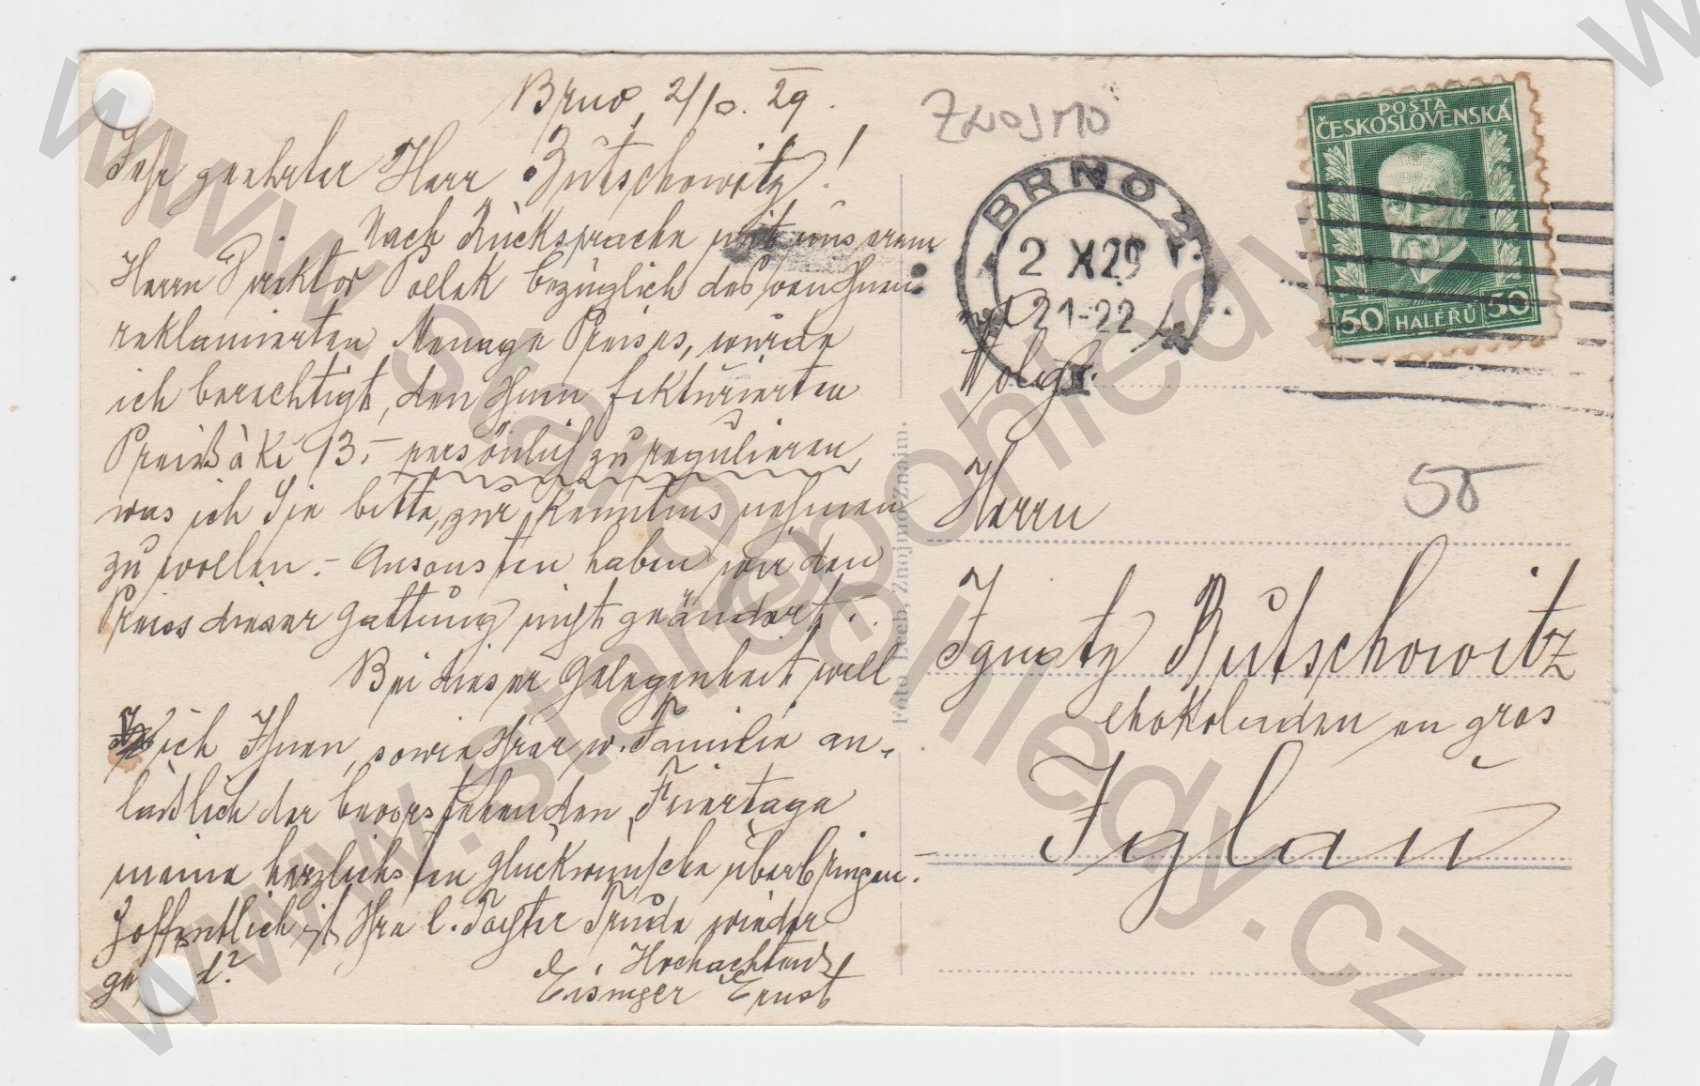 Brno, 2/10. 29.
Sehr geehrter Herr Butschowitz!
Nach Rücksprache mit unserem
Herrn Direktor Pollak bezüglich des von Ihnen
reklamierten Menage Preises, wurde
ich berechtigt, den Ihnen fakturierten
Preis à Kč 13.- persönlich zu regulieren,
was ich Sie bitte, zur Kenntnis nehmen
zu wollen. - Ansonsten haben wir den
Preis dieser Gattung nicht geändert. -
Bei dieser Gelegenheit will
ich Ihnen, sowie Ihrer w. Familie an-
läßlich der bevorstehenden Feiertage
meine herzlichsten Glückwünsche überbringen. -
Hoffentlich ist Ihre l. Tochter Trude wieder
Hochachtend
Eisinger Ernst
Foto Lech, Znojmo-Znaim.
ZNOJMO
BRNO 2
2 X 29
21-22
POSTA
ČESKOSLOVENSKÁ
50 HALÉŘŮ 50
Wohlg.
50
Herrn
Ignatz Butschowitz
Chokoladen en gros
Iglau
www.stare-pohledy.cz
www.stare-pohledy.cz